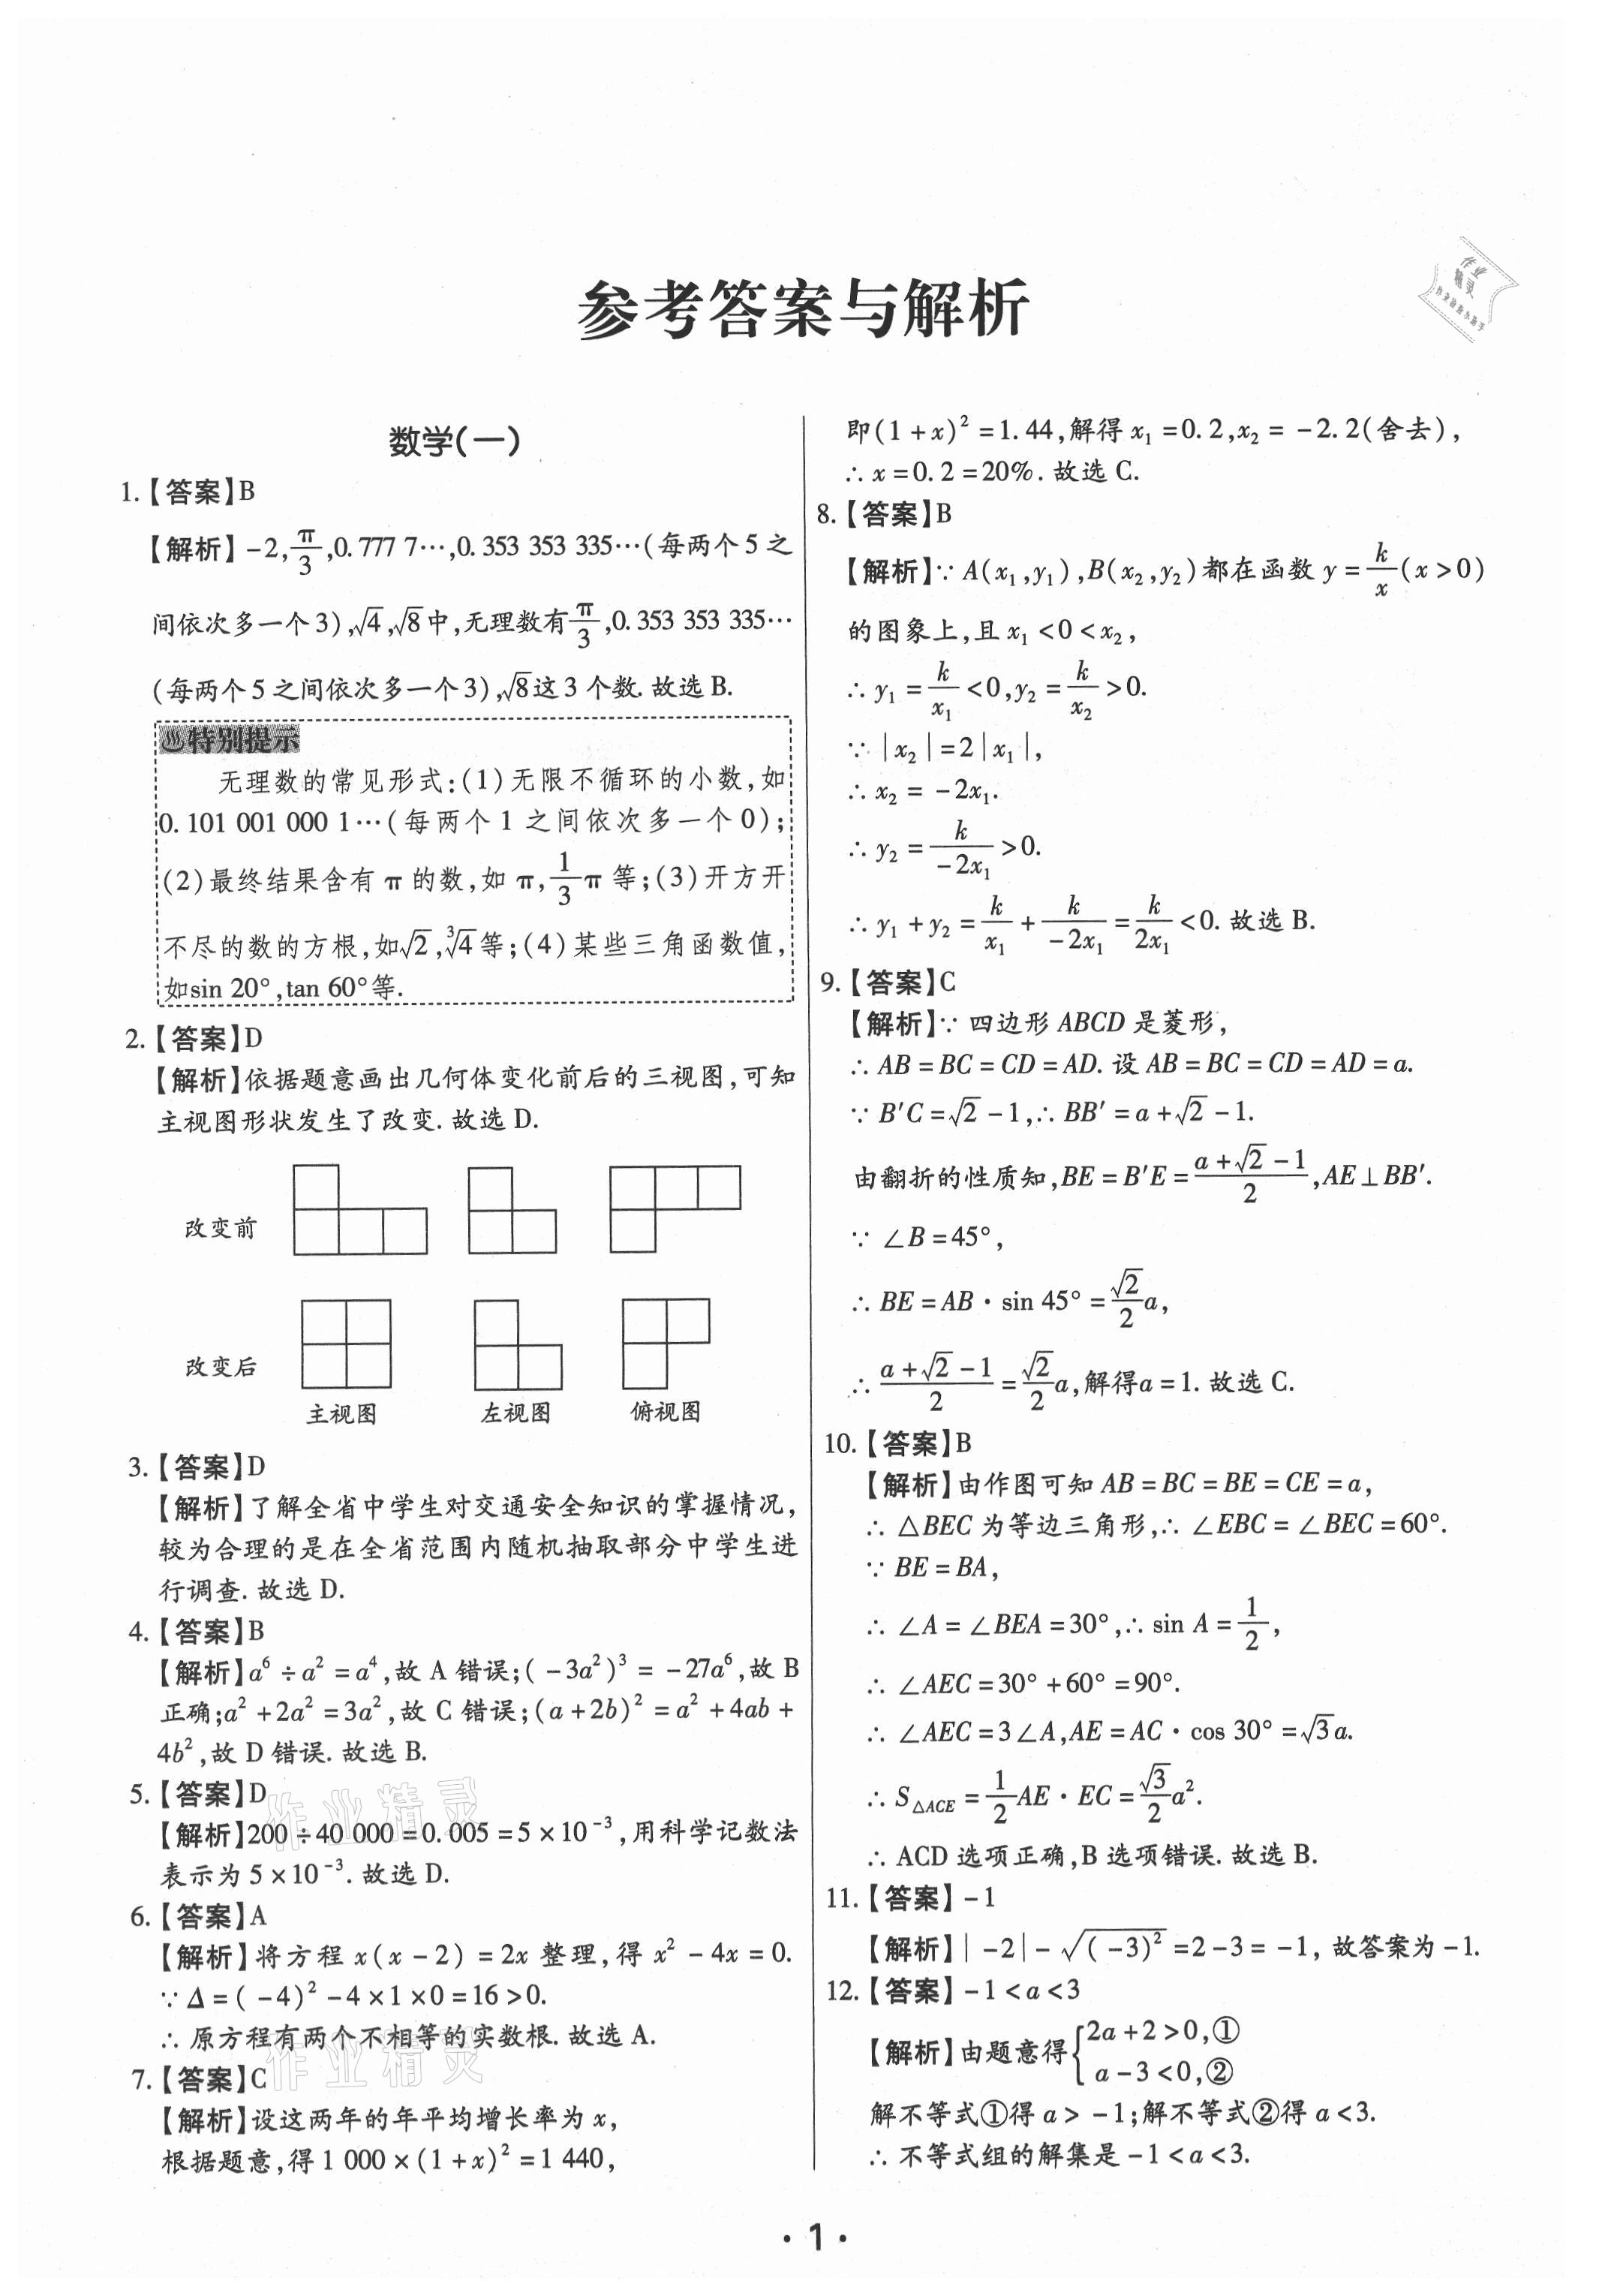 参考答案与解析
作业
精灵
数学(一)
1.【答案】B
【解析】-2,π/3,0.777 7…,0.353 353 335…(每两个5之
间依次多一个3),√4,√8中,无理数有π/3,0.353 353 335…
(每两个5之间依次多一个3),√8这3个数.故选B.
特别提示
无理数的常见形式:(1)无限不循环的小数,如
0.101 001 000 1…(每两个1之间依次多一个0);
(2)最终结果含有π的数,如π,1/3π等;(3)开方开
不尽的数的方根,如√2,∛4等;(4)某些三角函数值,
如sin 20°,tan 60°等.
2.【答案】D
【解析】依据题意画出几何体变化前后的三视图,可知
主视图形状发生了改变.故选D.
改变前
改变后
主视图 左视图 俯视图
3.【答案】D
【解析】了解全省中学生对交通安全知识的掌握情况,
较为合理的是在全省范围内随机抽取部分中学生进
行调查.故选D.
4.【答案】B
【解析】a⁶÷a²=a⁴,故A错误;(-3a²)³=-27a⁶,故B
正确;a²+2a²=3a²,故C错误;(a+2b)²=a²+4ab+
4b²,故D错误.故选B.
5.【答案】D
作业精灵
【解析】200÷40 000=0.005=5×10⁻³,用科学记数法
表示为5×10⁻³.故选D.
6.【答案】A
【解析】将方程x(x-2)=2x整理,得x²-4x=0.
∵Δ=(-4)²-4×1×0=16>0.
∴原方程有两个不相等的实数根.故选A.
作业精灵
7.【答案】C
【解析】设这两年的年平均增长率为x,
根据题意,得1 000×(1+x)²=1 440,
即(1+x)²=1.44,解得x₁=0.2,x₂=-2.2(舍去),
∴x=0.2=20%.故选C.
8.【答案】B
【解析】∵A(x₁,y₁),B(x₂,y₂)都在函数y=k/x(x>0)
的图象上,且x₁<0<x₂,
∴y₁=k/x₁<0,y₂=k/x₂>0.
∵|x₂|=2|x₁|,
∴x₂=-2x₁.
∴y₂=k/-2x₁>0.
∴y₁+y₂=k/x₁+k/-2x₁=k/2x₁<0.故选B.
9.【答案】C
【解析】∵四边形ABCD是菱形,
∴AB=BC=CD=AD.设AB=BC=CD=AD=a.
∵B′C=√2-1,∴BB′=a+√2-1.
由翻折的性质知,BE=B′E=(a+√2-1)/2,AE⊥BB′.
∵∠B=45°,
∴BE=AB·sin 45°=√2/2a,
∴(a+√2-1)/2=√2/2a,解得a=1.故选C.
10.【答案】B
【解析】由作图可知AB=BC=BE=CE=a,
∴△BEC为等边三角形,∴∠EBC=∠BEC=60°.
∵BE=BA,
∴∠A=∠BEA=30°,∴sin A=1/2,
∴∠AEC=30°+60°=90°.
∴∠AEC=3∠A,AE=AC·cos 30°=√3a.
∴S△ACE=1/2AE·EC=√3/2a².
∴ACD选项正确,B选项错误.故选B.
11.【答案】-1
【解析】|-2|-√(-3)²=2-3=-1,故答案为-1.
12.【答案】-1<a<3
【解析】由题意得{2a+2>0,①
a-3<0,②
解不等式①得a>-1;解不等式②得a<3.
∴不等式组的解集是-1<a<3.
·1·